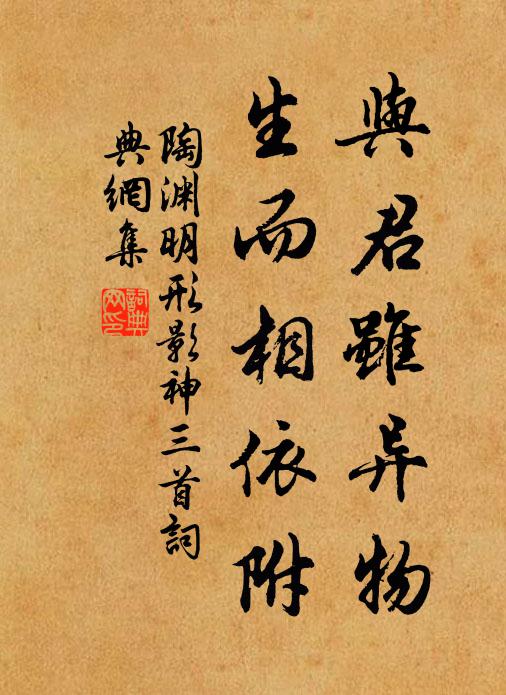 與君雖异物
生而相依附
陶渊明形影神三首詞
典網集
詞典
网印